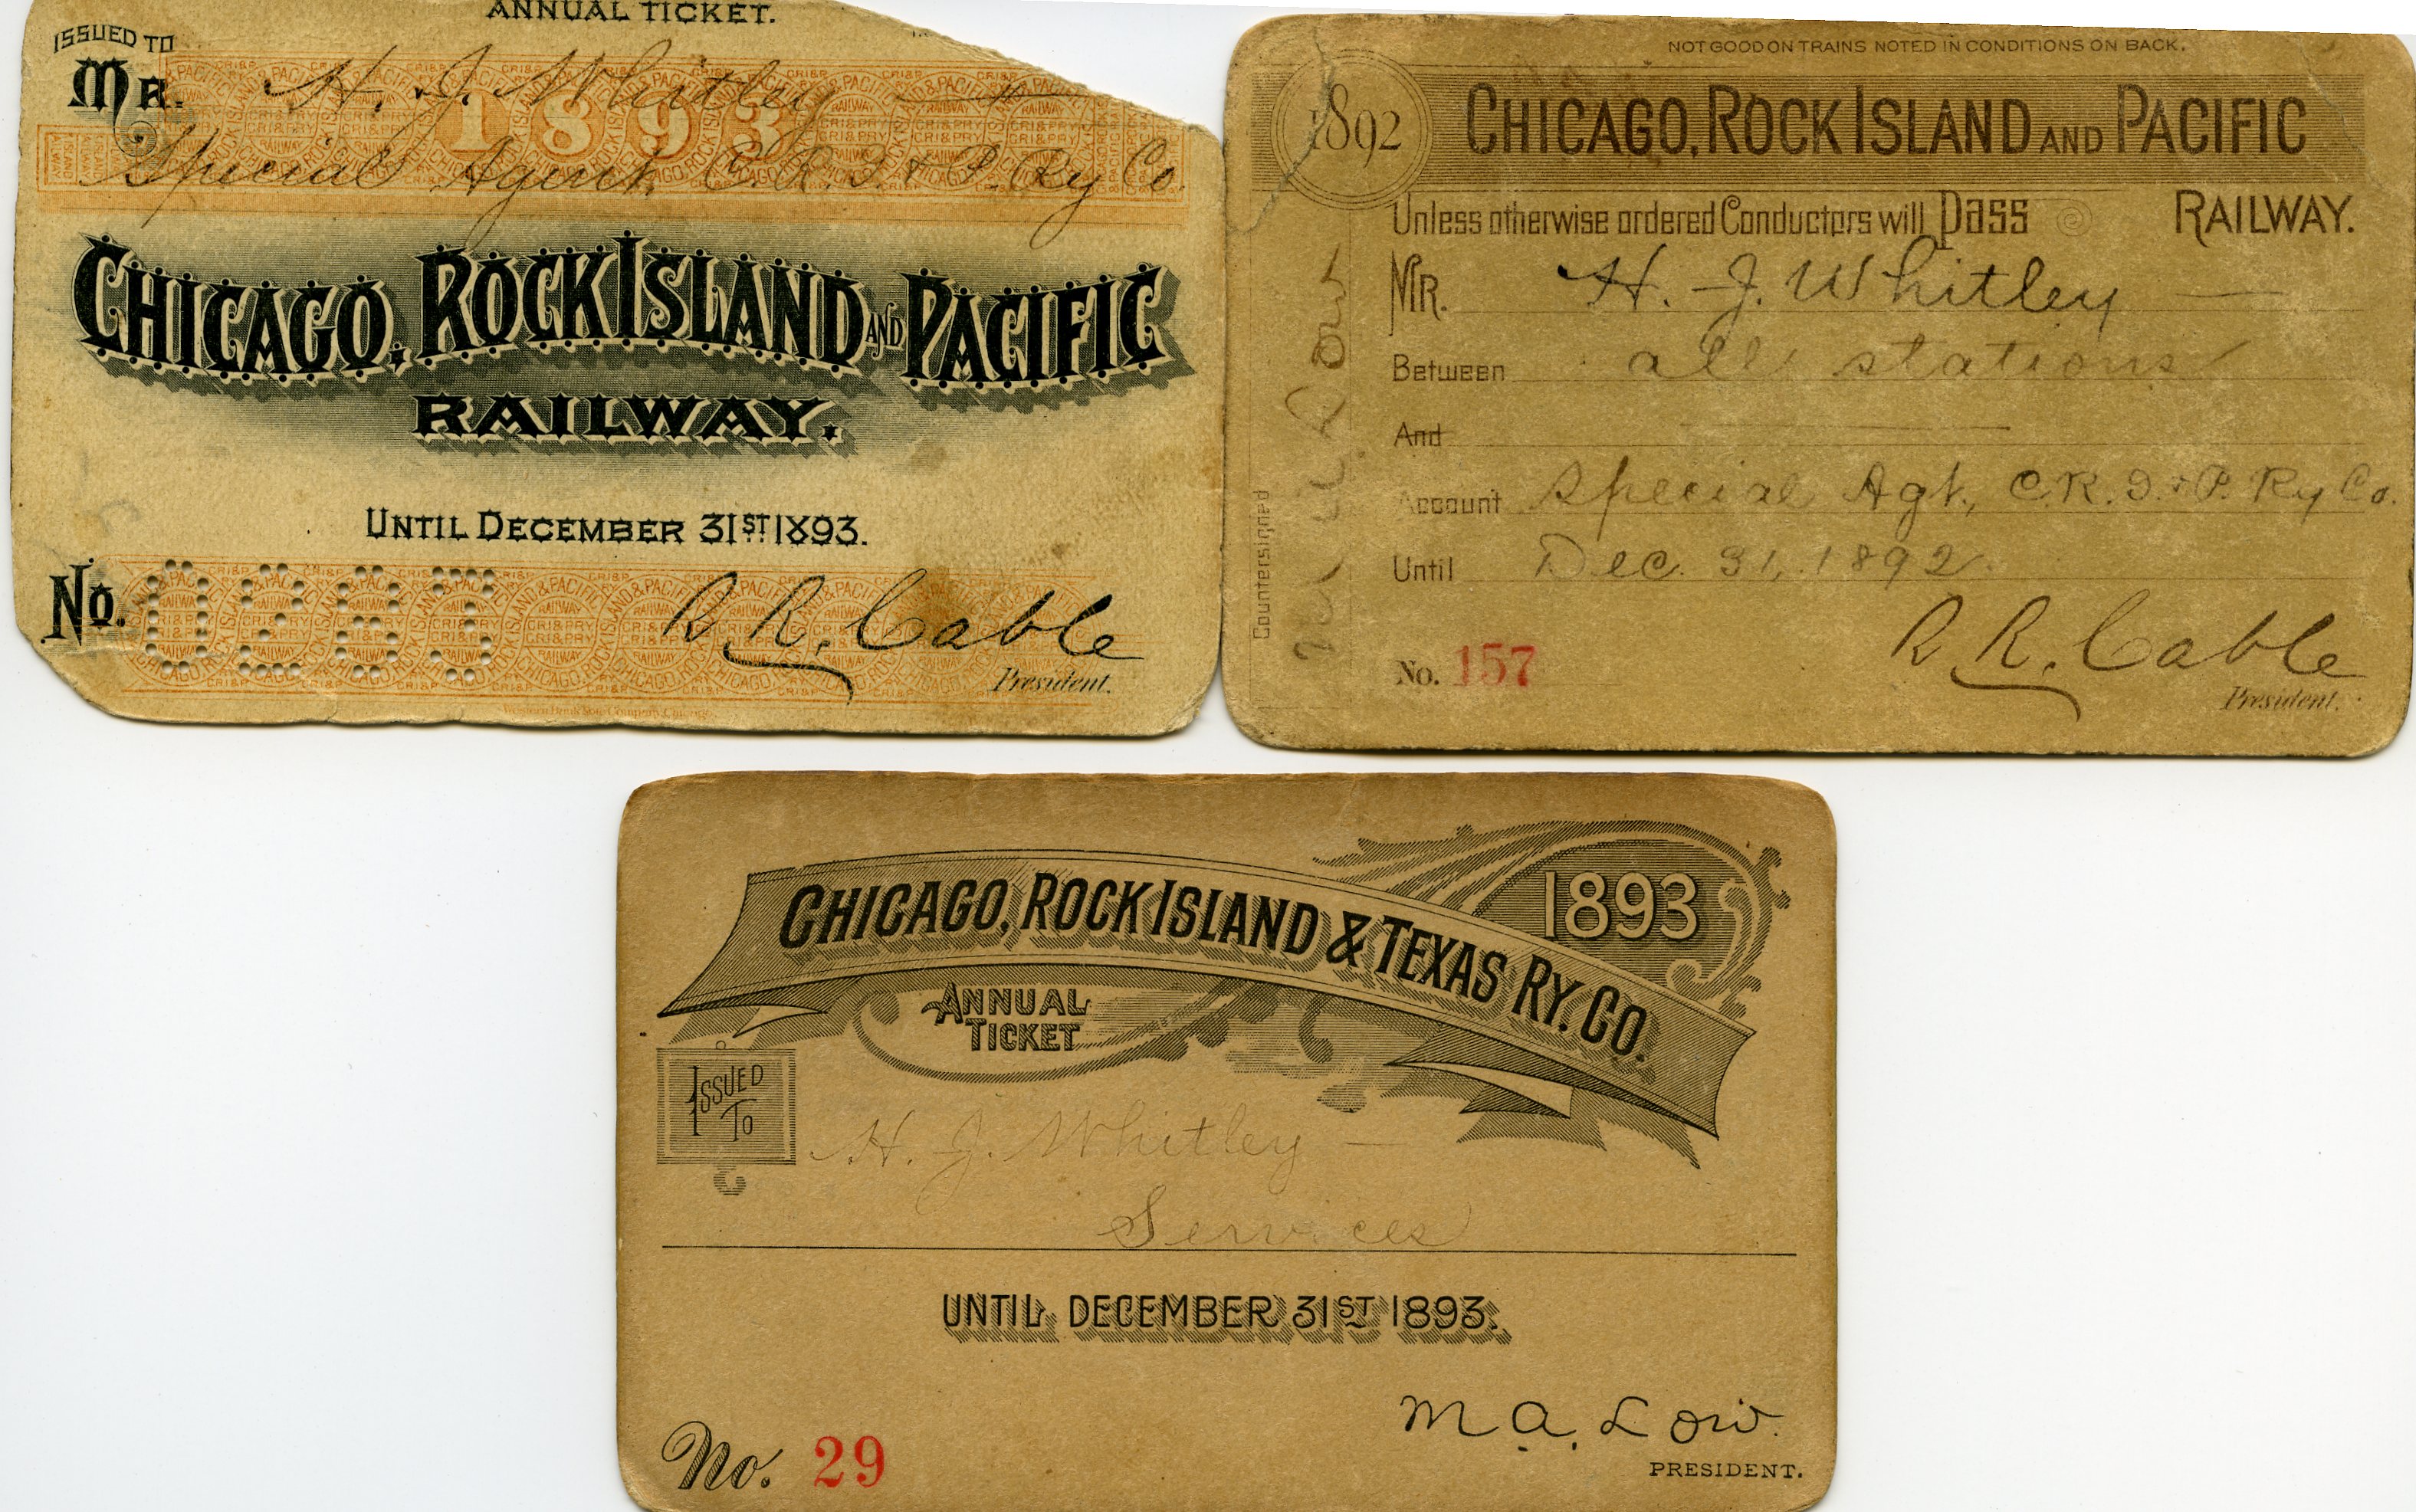 ANNUAL TICKET.
ISSUED TO
MR. H. J. Whitley
1893
Special Agent C. R. I. & P. Ry Co.
CHICAGO, ROCK ISLAND AND PACIFIC
RAILWAY.
UNTIL DECEMBER 31ST 1893.
No.
R. R. Cable
President.
Western Bank Note Company, Chicago.
NOT GOOD ON TRAINS NOTED IN CONDITIONS ON BACK.
1892
CHICAGO, ROCK ISLAND AND PACIFIC
RAILWAY.
Unless otherwise ordered Conductors will Pass
MR. H. J. Whitley
Between all stations
And
Account Special Agt, C. R. I. & P. Ry Co.
Until Dec. 31, 1892.
No. 157
R. R. Cable
President.
Countersigned
CHICAGO, ROCK ISLAND & TEXAS RY. CO.
1893
ANNUAL
TICKET
ISSUED
TO
H. J. Whitley
Services
UNTIL DECEMBER 31ST 1893.
M. A. Low.
PRESIDENT.
No. 29